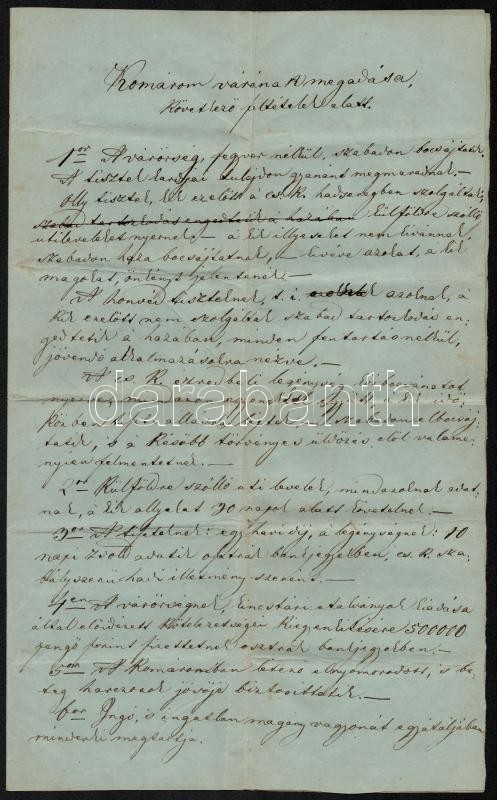 Komárom várának megadása,
következő feltételek alatt.
1ör A várőrség, fegyver nélkül, szabadon bocsájtatik.
A tisztek kardjai tulajdon gyanánt megmaradnak.
Olly tisztek, kik ezelőtt a cs. K. hadseregben szolgáltak,
szabad tartózkodás engedtetik a hazában külföldre szólló
utileveleket nyernek, – a kik illyeseket nem kívánnak
szabadon haza bocsájtatnak, – kivéve azokat, a kik
magokat, önkényt jelentenék. –
A honvéd tiszteknek, t. i. azoknak, a
kik ezelőtt nem szolgáltak szabad tartózkodás en-
gedtetik a hazában, minden fentartás nélkül,
jövendő alkalmazásokra nézve. –
A cs. K. ezredbeli legénység
szabadon elbocsáj-
tatik, is a későbbi törvényes üldözés elöl valame-
nyien felmentetnek. –
2or Külföldre szólló uti levelek, mindazoknak adat-
nak, a kik allyakat 30 napok alatt követelnek. –
3or A tiszteknek: egy havi díj, a legénységnek: 10
napi zsold adatik osztrák bankjegyekben, cs. K. sza-
bályszerű hadi illetmény szerént. –
4en A várőrségnek, kincstári utalványok kiadása
által előidézett kötelezettségei kiegenlitésére 500000
pengő forint fizettetnek osztrák bankjegyekben. –
5ször A Komáromban létező elnyomorodott, is be-
teg harczosok jövője biztosittatik. –
6or Ingó, is ingatlan magány vagyonát egyátaljában
mindenki megtartja.
darabanth